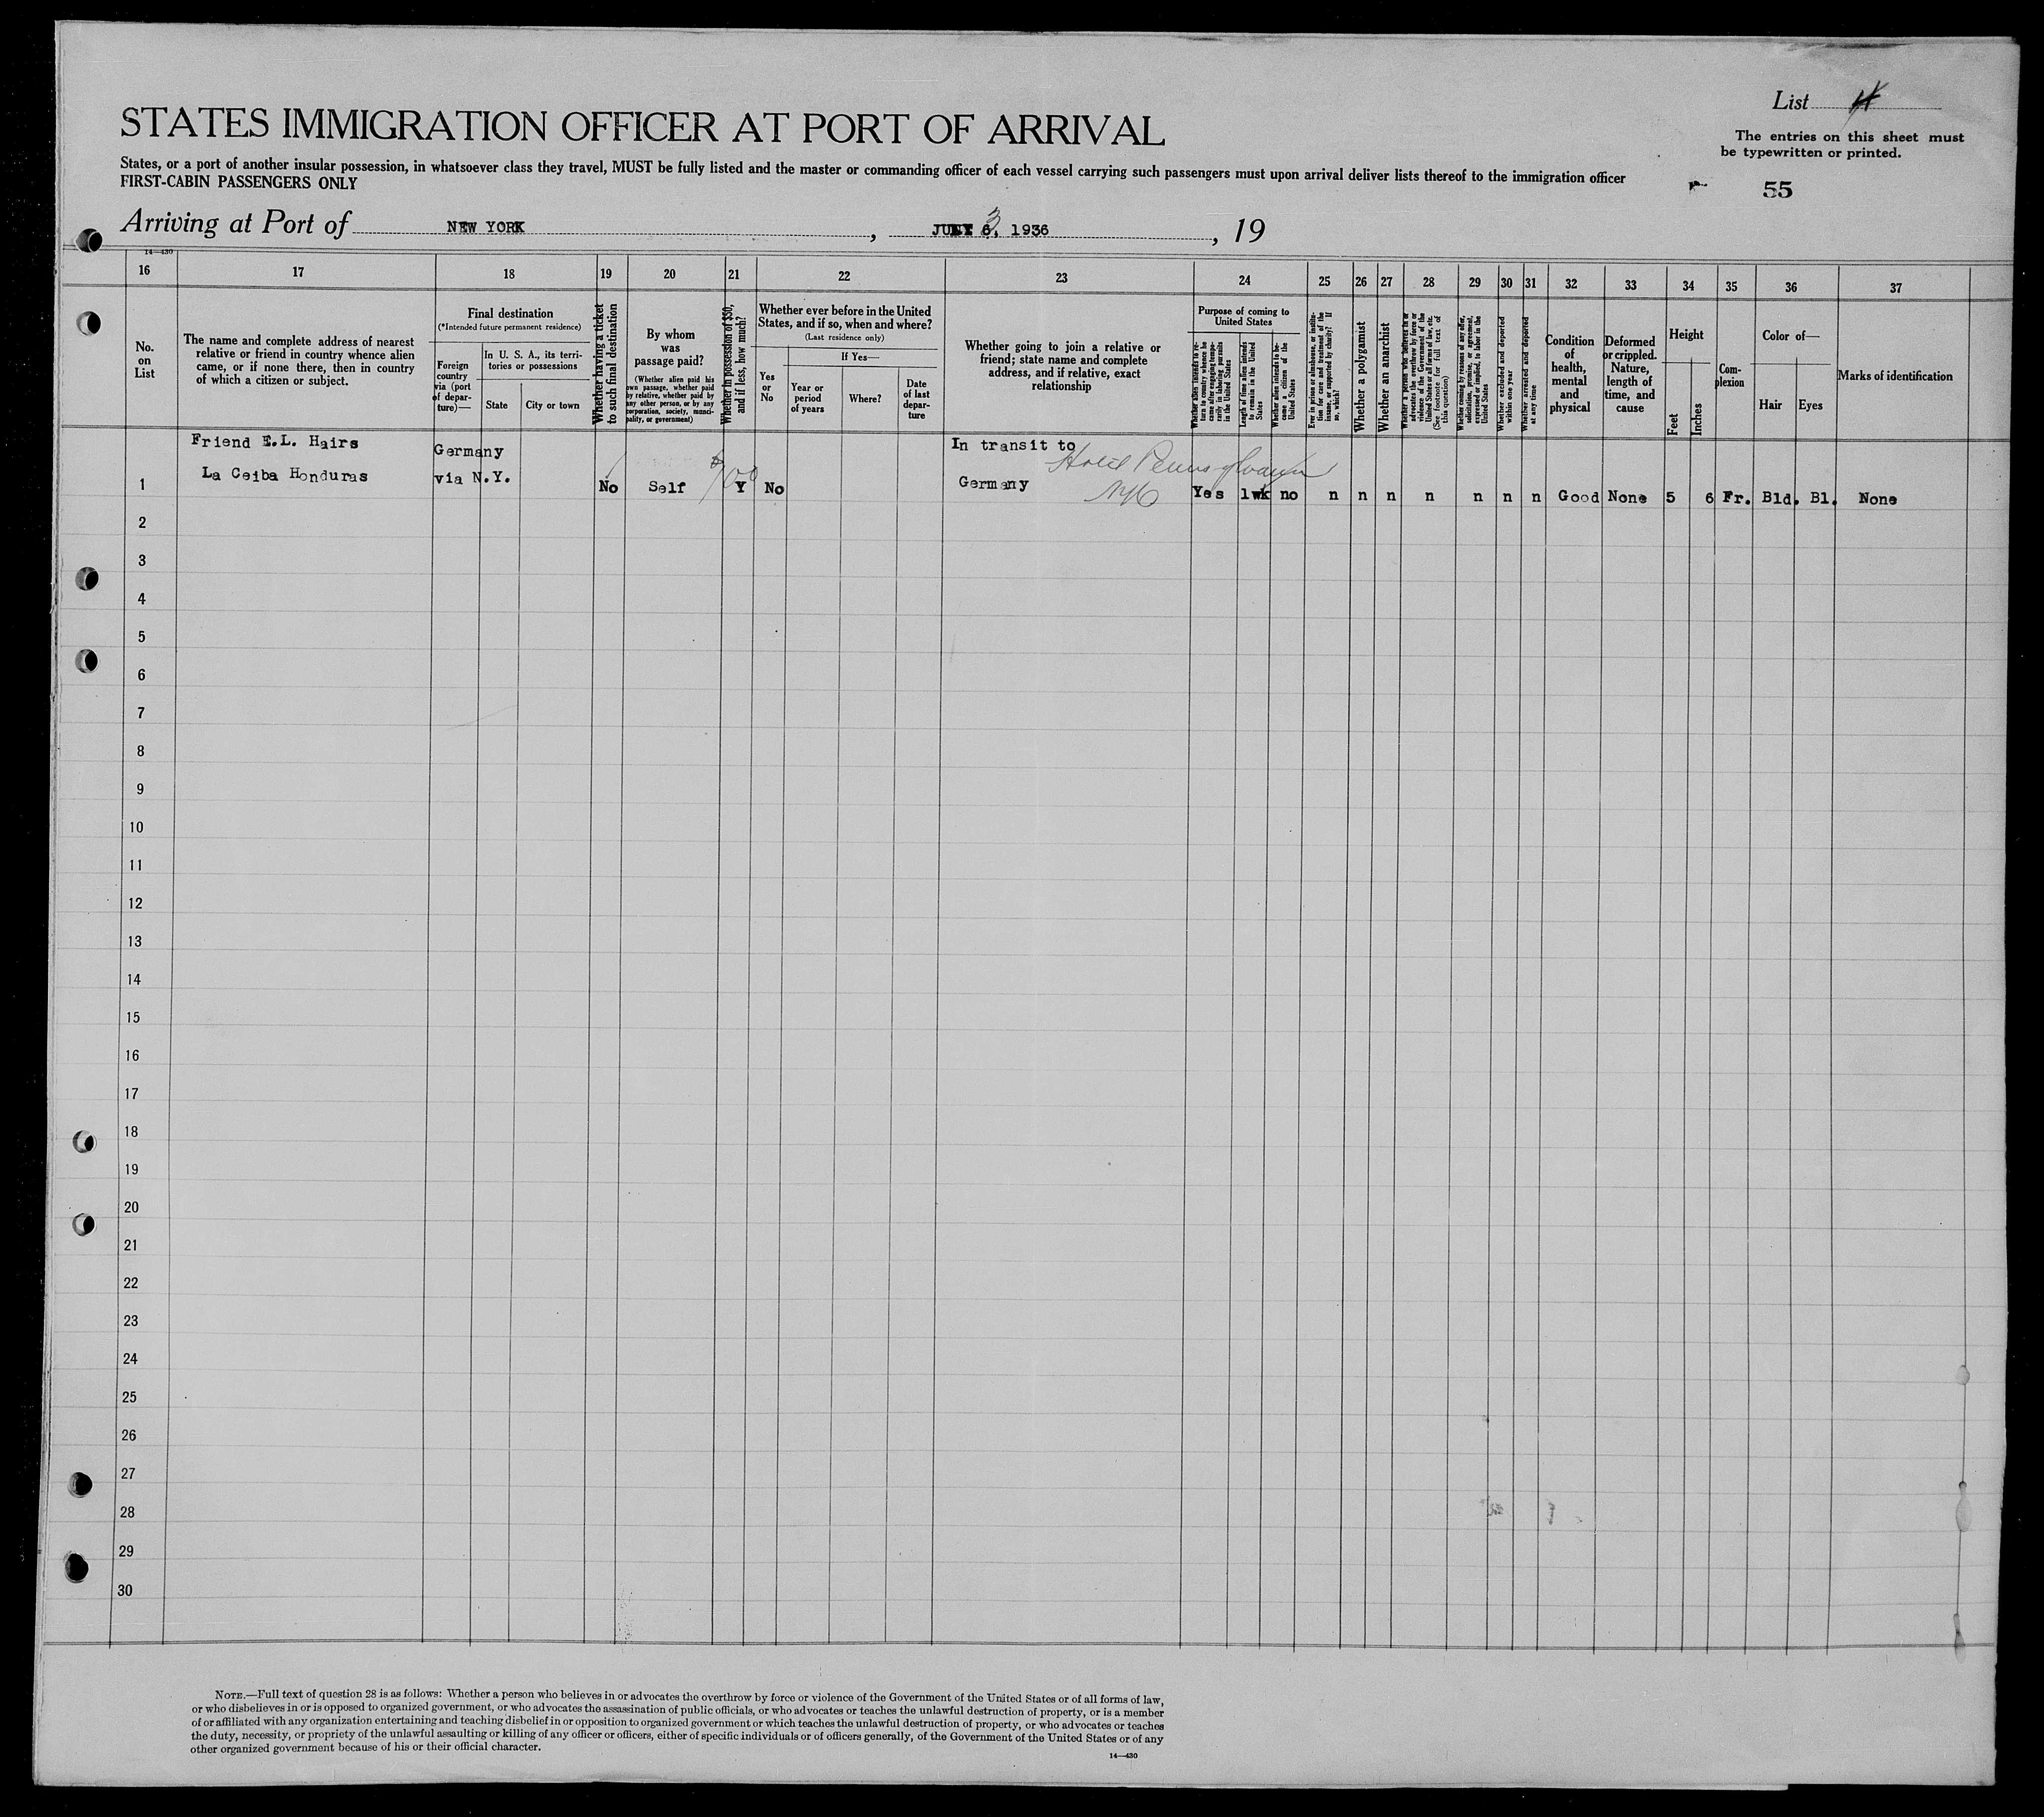 List 4
STATES IMMIGRATION OFFICER AT PORT OF ARRIVAL
The entries on this sheet must
be typewritten or printed.
States, or a port of another insular possession, in whatsoever class they travel, MUST be fully listed and the master or commanding officer of each vessel carrying such passengers must upon arrival deliver lists thereof to the immigration officer
FIRST-CABIN PASSENGERS ONLY
55
Arriving at Port of NEW YORK, 3, 1936, 19
14—430
16 17 18 19 20 21 22 23 24 25 26 27 28 29 30 31 32 33 34 35 36 37
No.
on
List
The name and complete address of nearest
relative or friend in country whence alien
came, or if none there, then in country
of which a citizen or subject.
Final destination
(*Intended future permanent residence)
Foreign
country
via (port
of depar-
ture)—
In U. S. A., its terri-
tories or possessions
State
City or town
Whether having a ticket
to such final destination
By whom
was
passage paid?
(Whether alien paid his
own passage, whether paid
by relative, whether paid by
any other person, or by any
corporation, society, munici-
pality, or government)
Whether in possession of $50,
and if less, how much?
Whether ever before in the United
States, and if so, when and where?
(Last residence only)
Yes
or
No
If Yes—
Year or
period
of years
Where?
Date
of last
depar-
ture
Whether going to join a relative or
friend; state name and complete
address, and if relative, exact
relationship
Purpose of coming to
United States
Whether alien intends to re-
turn to country whence he
came after engaging tempo-
rarily in laboring pursuits
in the United States
Length of time alien intends
to remain in the United
States
Whether alien intends to be-
come a citizen of the
United States
Ever in prison or almshouse, or institu-
tion for care and treatment of the
insane, or supported by charity? If
so, which?
Whether a polygamist
Whether an anarchist
Whether a person who believes in or
advocates the overthrow by force or
violence of the Government of the
United States or all forms of law, etc.
(See footnote for full text of
this question)
Whether coming by reason of any offer,
solicitation, promise, or agreement,
expressed or implied, to labor in the
United States
Whether excluded and deported
within one year
Whether arrested and deported
at any time
Condition
of
health,
mental
and
physical
Deformed
or crippled.
Nature,
length of
time, and
cause
Height
Feet
Inches
Com-
plexion
Color of—
Hair
Eyes
Marks of identification
Friend E.L. Hairs
La Ceiba Honduras
Germany
via N.Y.
In transit to
Germany
Hotel Pennsylvania
NYC
$100
1 No Self Y No Yes 1wk no n n n n n n n Good None 5 6 Fr. Bld. Bl. None
2
3
4
5
6
7
8
9
10
11
12
13
14
15
16
17
18
19
20
21
22
23
24
25
26
27
28
29
30
NOTE.—Full text of question 28 is as follows: Whether a person who believes in or advocates the overthrow by force or violence of the Government of the United States or of all forms of law,
or who disbelieves in or is opposed to organized government, or who advocates the assassination of public officials, or who advocates or teaches the unlawful destruction of property, or is a member
of or affiliated with any organization entertaining and teaching disbelief in or opposition to organized government or which teaches the unlawful destruction of property, or who advocates or teaches
the duty, necessity, or propriety of the unlawful assaulting or killing of any officer or officers, either of specific individuals or of officers generally, of the Government of the United States or of any
other organized government because of his or their official character.
14—430